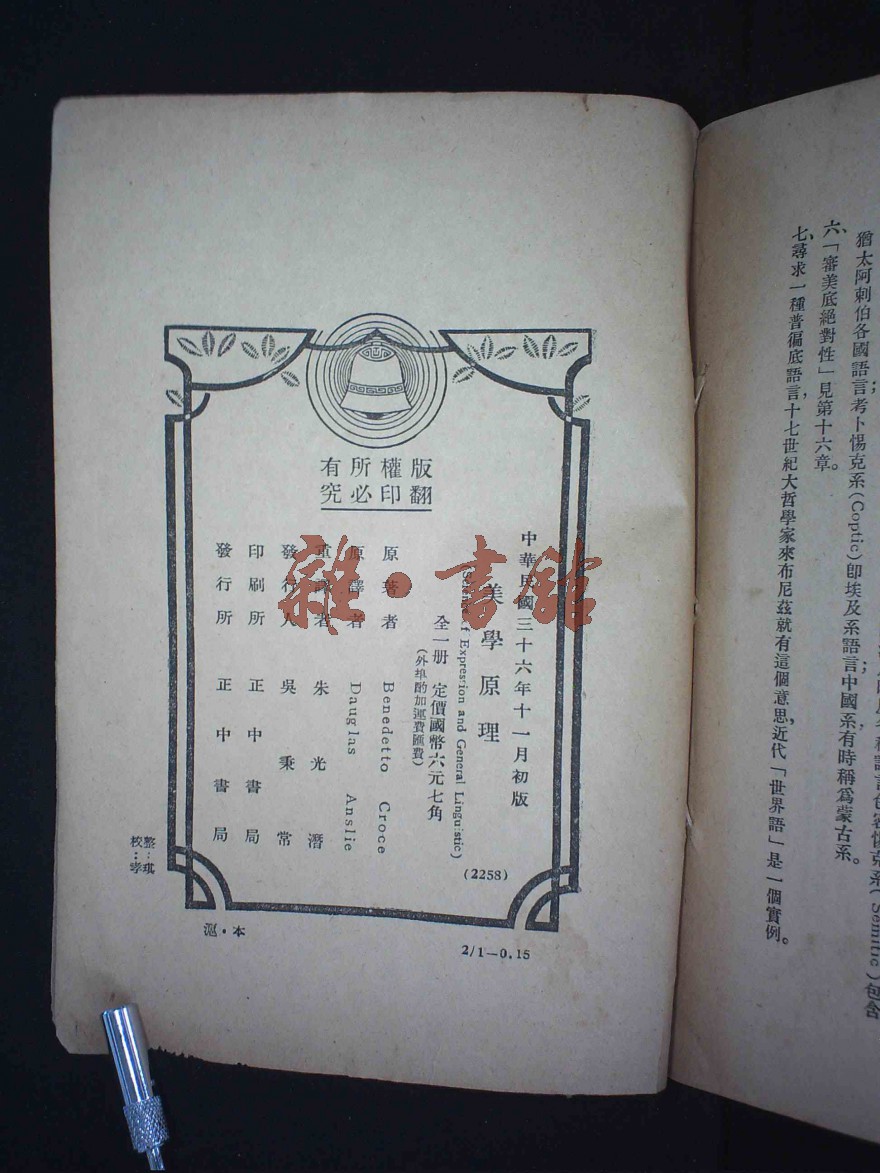 猶太阿剌伯各國語言考卜惕克系(Coptic)卽埃及系語言中國系有時稱爲蒙古系。
六、「審美底絕對性」見第十六章。
七、尋求一種普徧底語言,十七世紀大哲學家來布尼茲就有這個意思,近代「世界語」是一個實例。
版權所有
翻印必究
中華民國三十六年十一月初版
美學原理
of Expression and General Linguistic)
全一册 定價國幣六元七角
(外埠酌加運費匯費)
原著者 Benedetto Croce
原譯者 Dauglas Anslie
重譯者 朱光潛
發行人 吳秉常
印刷所 正中書局
發行所 正中書局
(2258)
整:琪
校:孝
滬・本
2/1—0.15
雜・書館